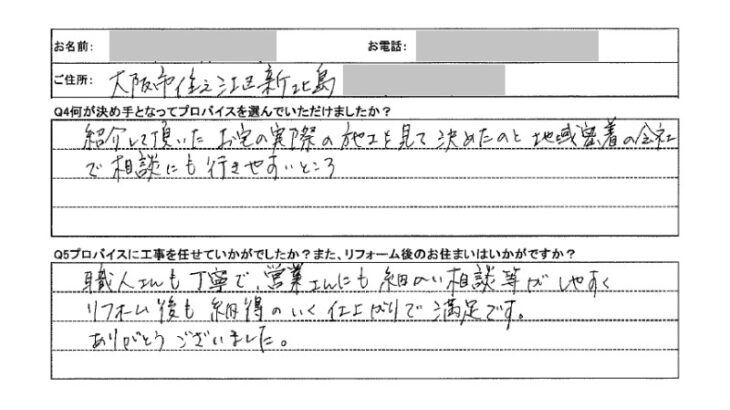 お名前: お電話:
ご住所: 大阪市住之江区新北島
Q4何が決め手となってプロバイスを選んでいただけましたか?
紹介して頂いた お宅の実際の施工を見て決めたのと 地域密着の会社
で相談にも行きやすいところ
Q5プロバイスに工事を任せていかがでしたか?また、リフォーム後のお住まいはいかがですか?
職人さんも丁寧で、営業さんにも細かい相談等がしやすく
リフォーム後も納得のいく仕上がりで満足です。
ありがとうございました。